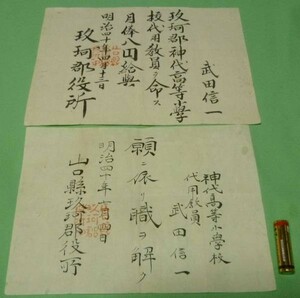 武田信一
玖珂郡神代高等小學
校代用教員ヲ命ス
月俸八円給與
明治四十年四月十三日
玖珂郡役所
神代高等小學校
代用教員
武田信一
願ニ依リ職ヲ解ク
明治四十年十月四日
山口縣玖珂郡役所